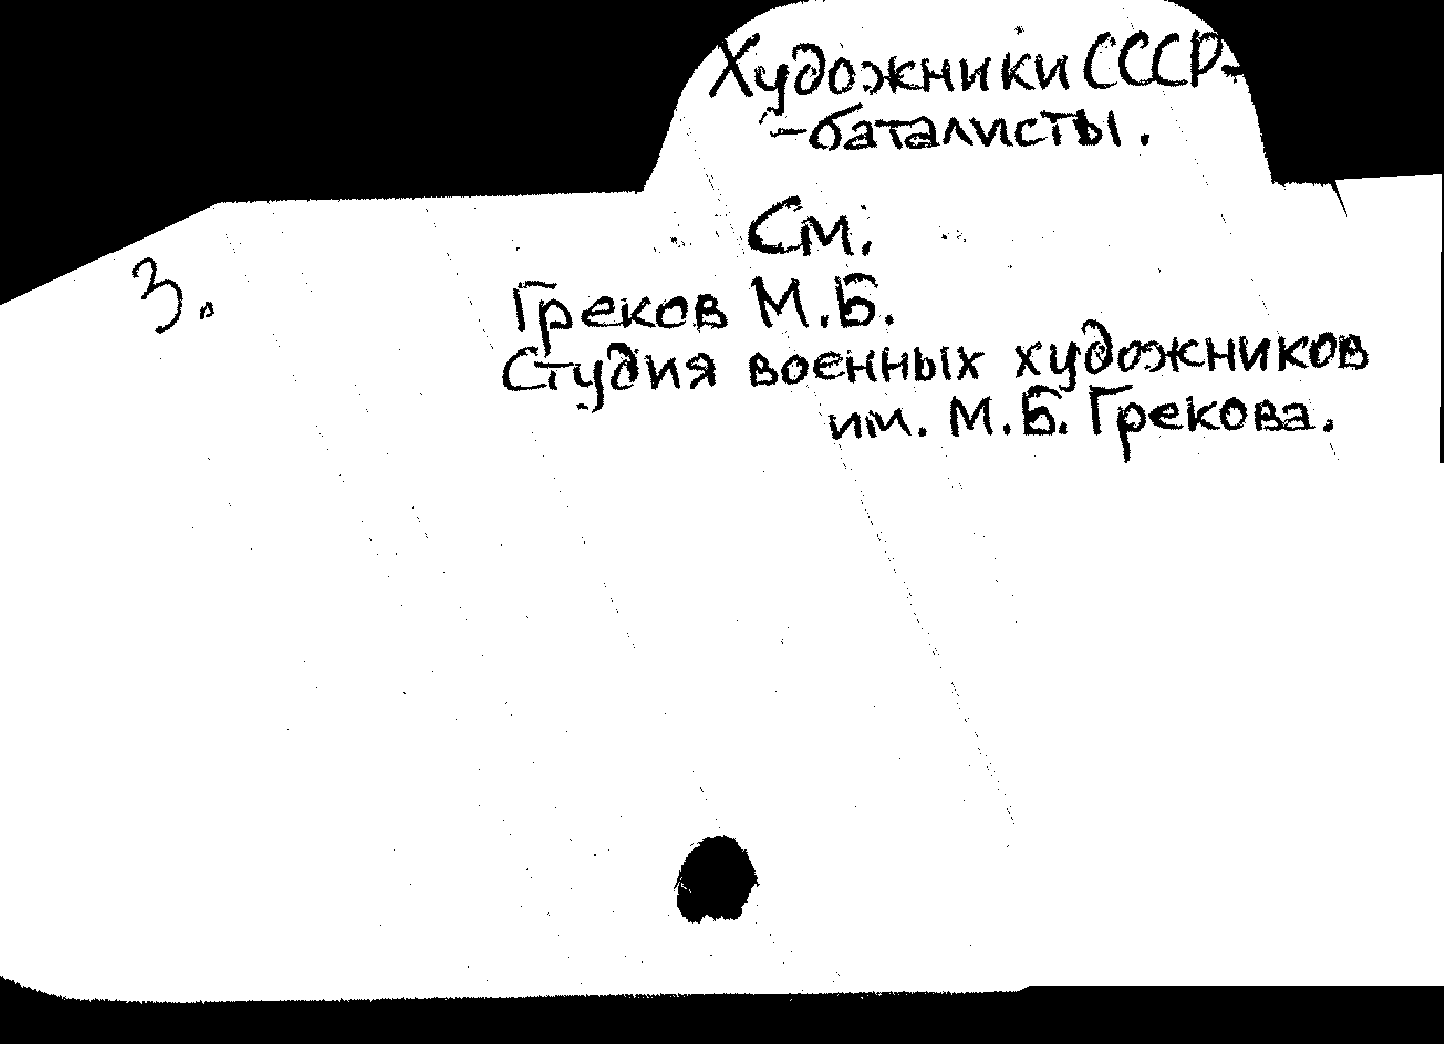 Художники СССР-
-баталисты.
См.
3.
Греков М.Б.
Студия военных художников
им. М.Б. Грекова.